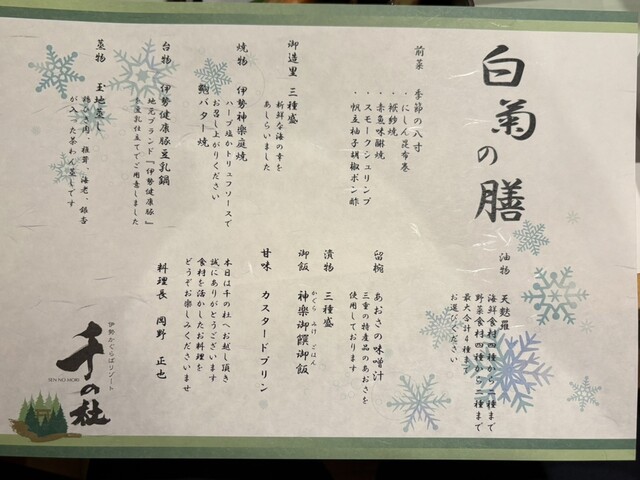 白菊の膳
前菜　季節の八寸
・にしん昆布巻
・袱紗焼
・赤魚味醂焼
・スモークシュリンプ
・帆立柚子胡椒ポン酢
御造里　三種盛
新鮮な海の幸を
あしらいました
焼物　伊勢神楽庭焼
ハーブ塩かトリュフソースで
お召し上がりください
鮑バター焼
台物　伊勢健康豚豆乳鍋
地元ブランド「伊勢健康豚」
を豆乳仕立てでご用意しました
蒸物　玉地蒸し
鶏ひき肉、椎茸、海老、銀杏
が入った茶わん蒸しです
油物　天麩羅
海鮮食材四種から二種まで
野菜食材四種から二種まで
最大合計4種まで
お選びください
留椀　あおさの味噌汁
三重の特産品のあおさを
使用しております
漬物　三種盛
御飯　神楽御饌御飯
かぐら　みけ　ごはん
甘味　カスタードプリン
本日は千の杜へお越し頂き
誠にありがとうございます
食材を活かしたお料理を
どうぞお楽しみくださいませ
料理長　岡野　正也
伊勢かぐらばリゾート
千の杜
SEN NO MORI